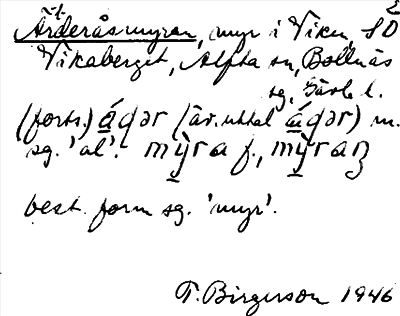 Ärderåsmyran, myr i Viken, SO
Vikaberget, Alfta sn, Bollnäs
sg, Gävle l.
(forts.) ádər (äv. uttal ádər) m.
sg. 'al'. mỳra f., mỳraɳ
best. form sg. 'myr'.
T. Birgerson 1946